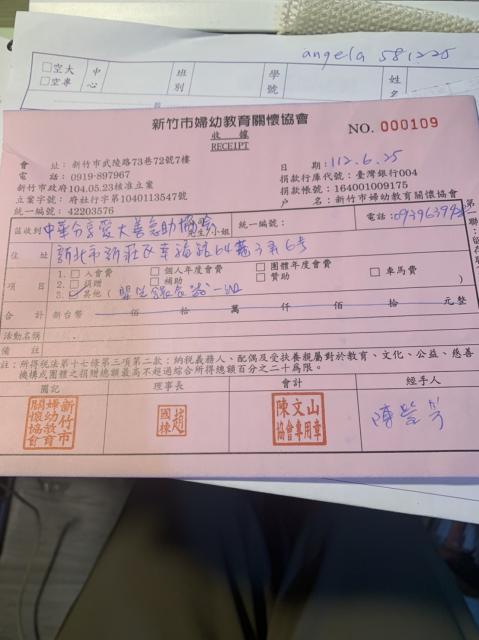 angela 581225
□空大
□空專
中
心
班
別
學
號
姓
名
新竹市婦幼教育關懷協會
收據
RECEIPT
NO. 000109
會 址：新竹市武陵路73巷72號7樓
電 話：0919-897967
新竹市政府104.05.23核准立案
立案字號：府社行字第1040113547號
統一編號：42203576
日 期：112.6.25
捐款行庫代號：臺灣銀行004
捐款帳號：164001009175
戶 名：新竹市婦幼教育關懷協會
茲收到 中華分享愛大善急助協會 先生/小姐
統一編號：
電話：
住 址 新北市新莊區幸福路64巷
項 目
1. □ 入會費 □ 個人年度會費 □ 團體年度會費 □ 車馬費
2. □ 捐贈 □ 補助 □ 贊助
3. 其他（ ）
合 計 新台幣 佰 拾 萬 仟 佰 拾 元整
活動名稱
備 註
註：所得稅法第十七條第三項第二款：納稅義務人、配偶及受扶養親屬對於教育、文化、公益、慈善
機構或團體之捐贈總額最高不超過綜合所得總額百分之二十為限。
圖記 理事長 會計 經手人
新竹市婦幼教育關懷協會
趙國棟
陳文山
協會專用章
第
聯